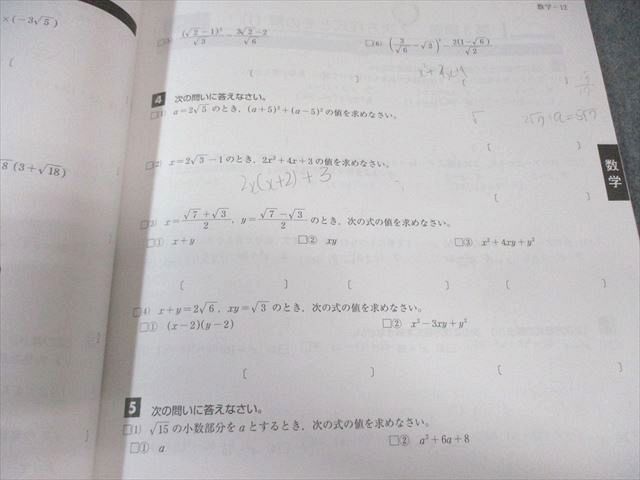 ×(−3√5)
数学−12
(√2−1)²/√3 − 3√2−2/√6
□(6) (3/√6 −√2)² − 2(1−√6)/√2
8 (3+√18)
数学
4 次の問いに答えなさい。
□(1) a=2√5 のとき，(a+5)²+(a−5)² の値を求めなさい。
□(2) x=2√3−1のとき，2x²+4x+3の値を求めなさい。
2x(x+2)+3
□(3) x=√7+√3/2，y=√7−√3/2 のとき，次の式の値を求めなさい。
□① x+y □② xy □③ x²+4xy+y²
□(4) x+y=2√6，xy=√3 のとき，次の式の値を求めなさい。
□① (x−2)(y−2) □② x²−3xy+y²
5 次の問いに答えなさい。
□(1) √15 の小数部分を a とするとき，次の式の値を求めなさい。
□① a □② a²+6a+8